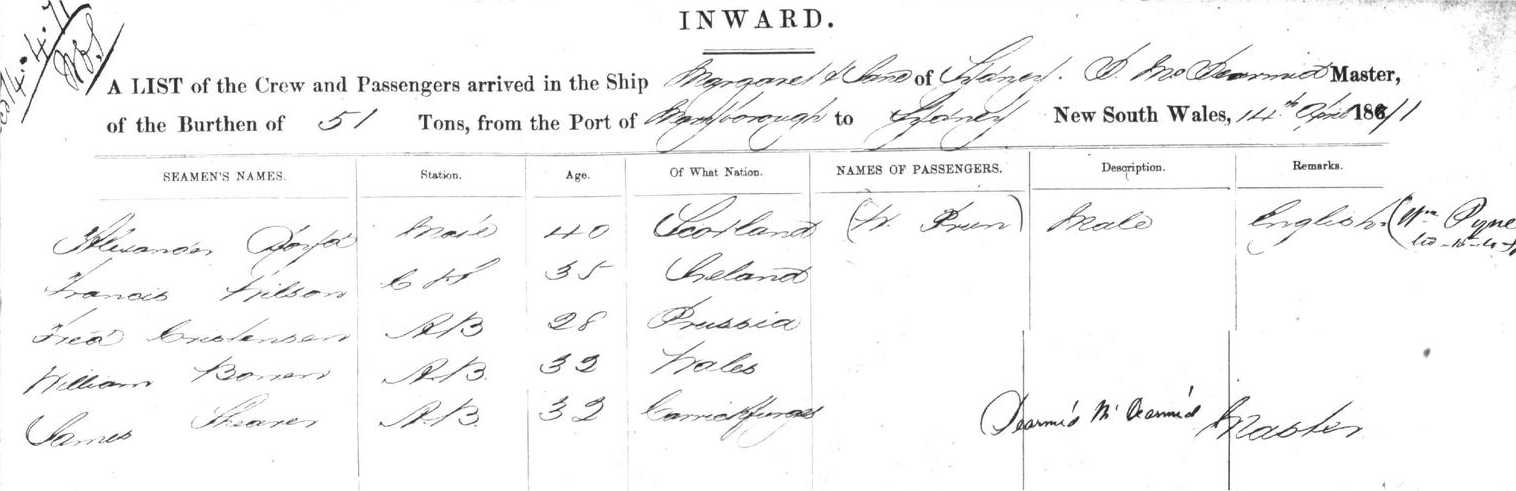 INWARD.
A LIST of the Crew and Passengers arrived in the Ship Margaret & Jane of Sydney. D. McDearmid Master,
of the Burthen of 51 Tons, from the Port of Maryborough to Sydney New South Wales, 14th April 1871
SEAMEN'S NAMES. Station. Age. Of What Nation. NAMES OF PASSENGERS. Description. Remarks.
Alexander Mate 40 Scotland (W. ) Male English (Wm Pyne
Francis Wilson C & S 35 Ireland
Fred Cristensen A.B 28 Prussia
William Bowen A.B. 32 Wales
James Shearer A.B. 32 Carrickfurges
Dearmid McDearmid Master